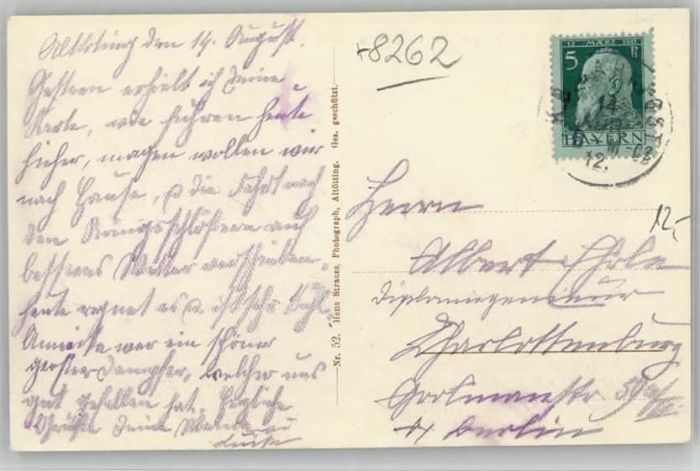 Altötting den 14. August.
Gestern erhielt ich Deine
Karte, wir fuhren heute
hieher, morgen wollen wir
nach Hause, u die Fahrt nach
den Königsschlössern auf
besseres Wetter verschieben.
heute regnet es u. ist sehr kühl.
war ein schöner
großer Dampfer, welcher uns
gut gefallen hat. Herzliche
Grüße Deine
+8262
12. MÄRZ 1911
5 Pf
BAYERN
14
12.
12,-
Nr. 52. Hans Strauss, Photograph, Altötting. Ges. geschützt.
Herrn
Albert
Diplomingenieur
Charlottenburg
b/ Berlin